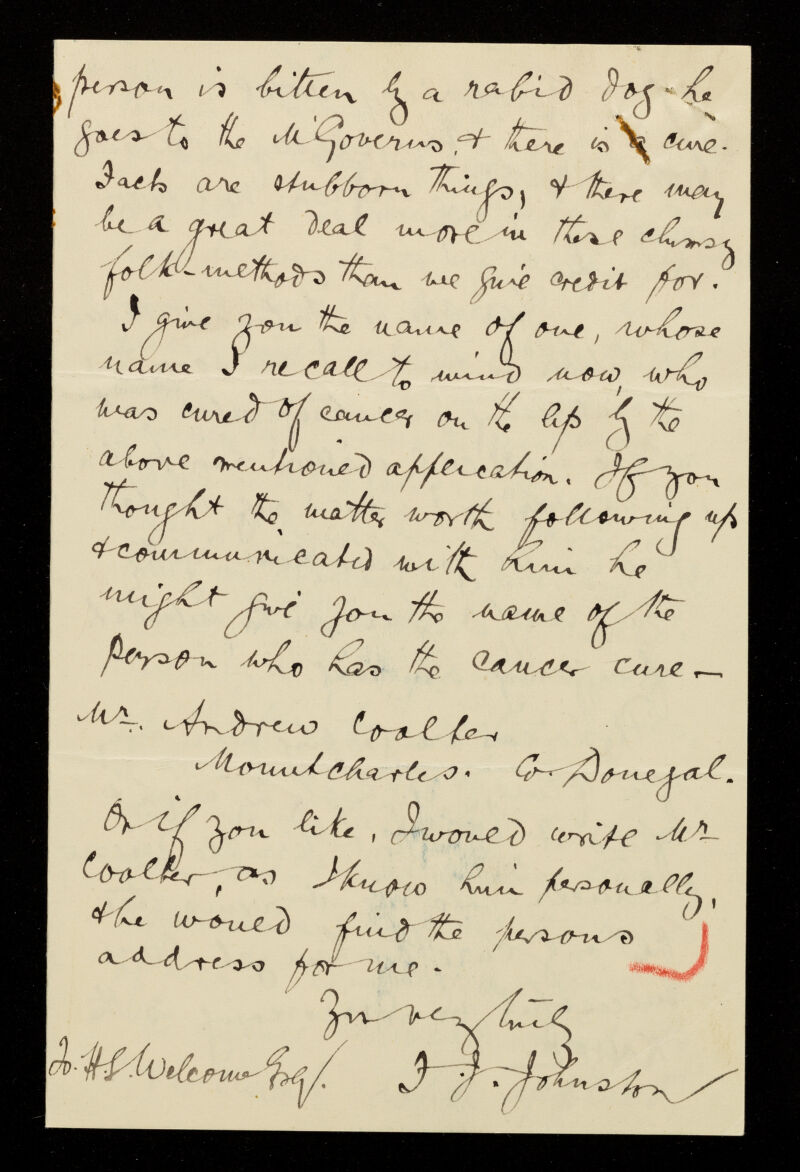 person is bitten by a rabid dog he
goes to the McGoverns, & there is a cure.
Facts are stubborn things, & there may
be a great deal more in these clumsy
folk-methods than we give credit for.
I give you the name of one, whose
name I recall to mind now, who
was cured of cancer on the lip by the
above mentioned application. If you
thought the matter worth following up
& communicated with him he
might give you the name of the
person who has the cancer cure —
Mr. Andrew Coalter
Mountcharles. Co. Donegal.
Or if you like, I would write Mr
Coalter, as I know him personally,
& he would find the persons
address for me.
Yrs very truly
To. H.S. Welcome Esq/.
T. J. Johnston